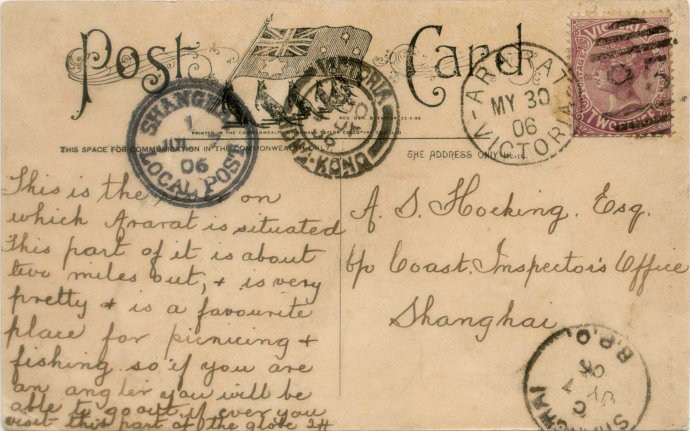 Post Card
VICTORIA
TWO
SHANGHAI
1
06
LOCAL POST
VICTORIA
HONG-KONG
ARARAT
MY 30
06
VICTORIA
THIS SPACE FOR COMMUNICATION IN THE COMMONWEALTH ONLY
THE ADDRESS ONLY
This is the on
which Ararat is situated
This part of it is about
two miles out, & is very
pretty & is a favourite
place for picnicing &
fishing so if you are
an angler you will be
able to go out if ever you
visit this part of the globe
A. S. Hocking. Esq.
c/o Coast Inspector's Office
Shanghai
SHANGHAI
B.P.O.